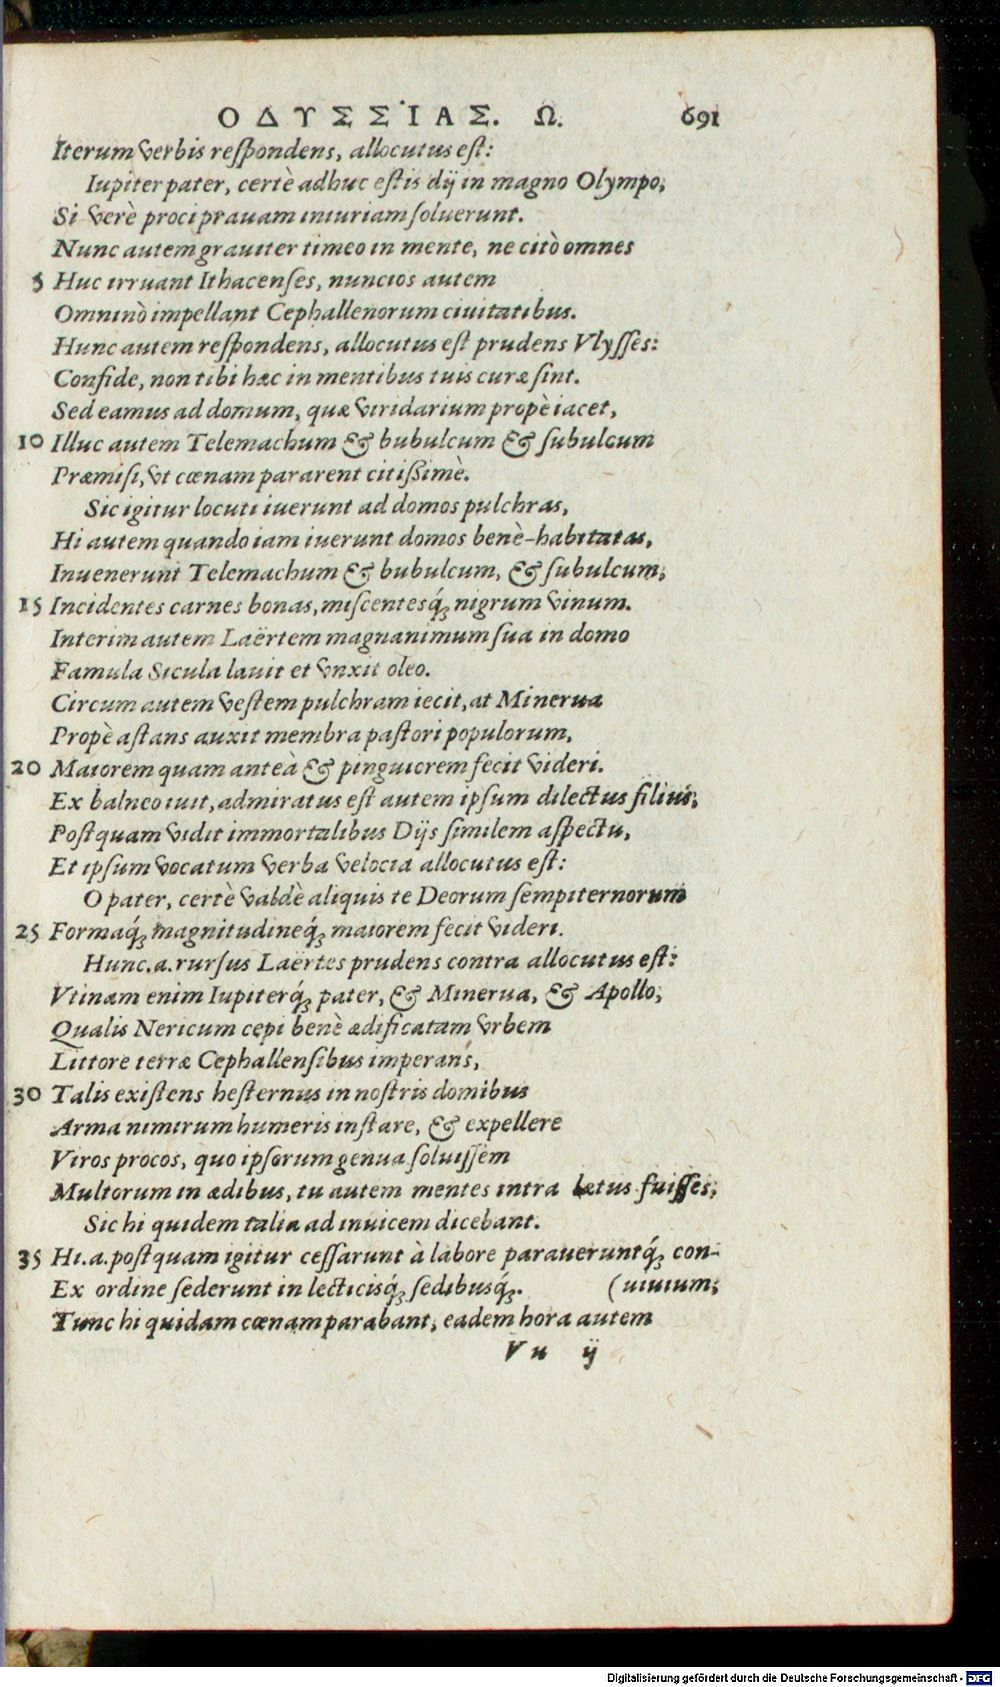 ΟΔΥΣΣΊΑΣ. Ω. 691
Iterum verbis respondens, allocutus est:
Iupiter pater, certè adhuc estis dij in magno Olympo,
Si verè proci prauam iniuriam soluerunt.
Nunc autem grauiter timeo in mente, ne citò omnes
5 Huc irruant Ithacenses, nuncios autem
Omninò impellant Cephallenorum ciuitatibus.
Hunc autem respondens, allocutus est prudens Vlysses:
Confide, non tibi hæc in mentibus tuis curæ sint.
Sed eamus ad domum, quæ viridarium propè iacet,
10 Illuc autem Telemachum & bubulcum & subulcum
Præmisi, vt cœnam pararent citissimè.
Sic igitur locuti iuerunt ad domos pulchras,
Hi autem quando iam iuerunt domos benè-habitatas,
Inuenerunt Telemachum & bubulcum, & subulcum,
15 Incidentes carnes bonas, miscentesq́; nigrum vinum.
Interim autem Laërtem magnanimum sua in domo
Famula Sicula lauit et vnxit oleo.
Circum autem vestem pulchram iecit, at Minerua
Propè astans auxit membra pastori populorum,
20 Maiorem quam anteà & pinguiorem fecit videri.
Ex balneo iuit, admiratus est autem ipsum dilectus filius,
Postquam vidit immortalibus Dijs similem aspectu,
Et ipsum vocatum verba velocia allocutus est:
O pater, certè valdè aliquis te Deorum sempiternorum
25 Formaq́; magnitudineq́; maiorem fecit videri.
Hunc.a.rursus Laërtes prudens contra allocutus est:
Vtinam enim Iupiterq́; pater, & Minerua, & Apollo,
Qualis Nericum cepi benè ædificatam vrbem
Littore terræ Cephallensibus imperans,
30 Talis existens hesternus in nostris domibus
Arma nimirum humeris instare, & expellere
Viros procos, quo ipsorum genua soluissem
Multorum in ædibus, tu autem mentes intra lætus fuisses,
Sic hi quidem talia ad inuicem dicebant.
35 Hi.a.postquam igitur cessarunt à labore paraueruntq́; con-
Ex ordine sederunt in lecticisq́; sedibusq́;. (uiuium,
Tunc hi quidam cœnam parabant, eadem hora autem
Vu ij
Digitalisierung gefördert durch die Deutsche Forschungsgemeinschaft - DFG